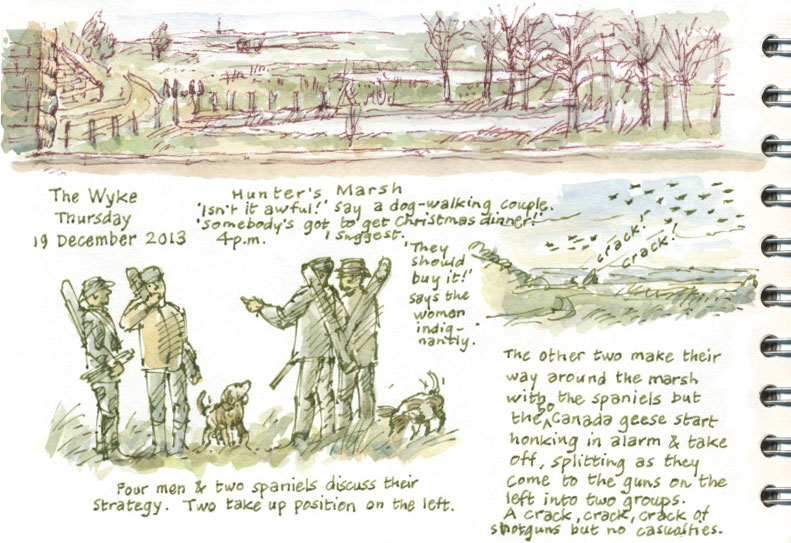 The Wyke
Thursday
19 December 2013
Hunter's Marsh
'Isn't it awful!' say a dog-walking couple.
'Somebody's got to get Christmas dinner!'
4 p.m. I suggest.
'They
should
buy it!'
says the
woman
indig-
nantly.
crack!
crack!
Four men & two spaniels discuss their
strategy. Two take up position on the left.
The other two make their
way around the marsh
with the spaniels but
the 60 Canada geese start
honking in alarm & take
off, splitting as they
come to the guns on the
left into two groups.
A crack, crack, crack of
shotguns but no casualties.